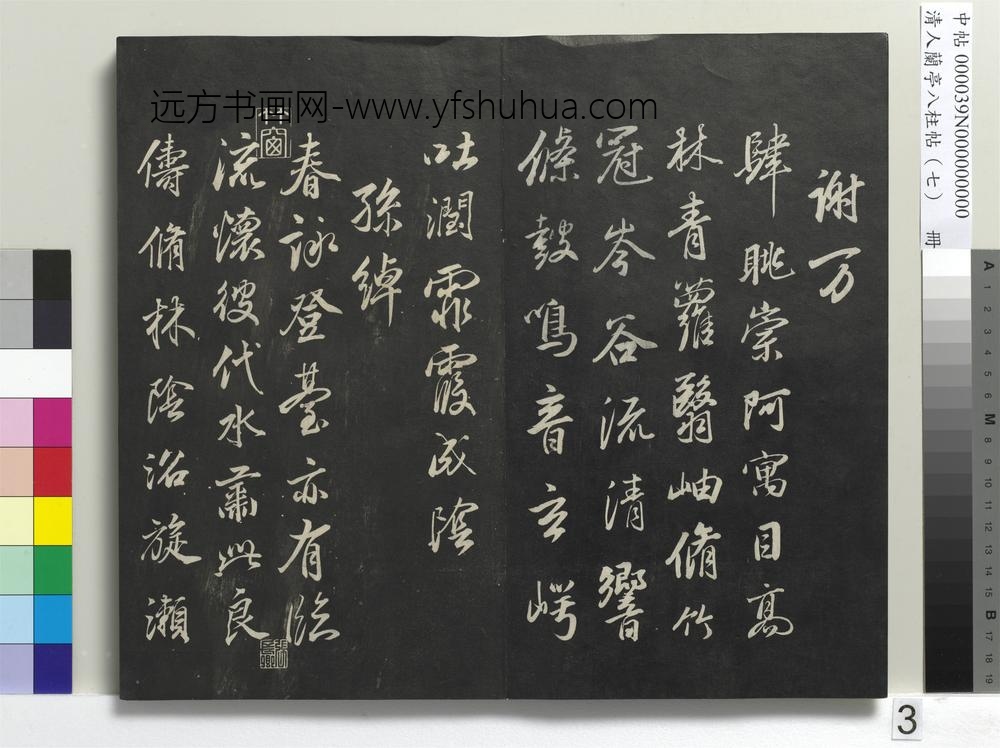 远方书画网-www.yfshuhua.com
中帖 000039N000000000
清人蘭亭八柱帖(七) 冊
謝万
肆眺崇阿寓目高
林青蘿翳岫脩竹
冠岑谷流清響
條鼓鳴音玄崿
吐潤霏霞成陰
孫綽
春詠登臺亦有臨
流懷彼伐木肅此良
儔脩林陰沼旋瀨
A 1 2 3 4 5 6 M 8 9 10 11 12 13 14 15 B 17 18 19
3